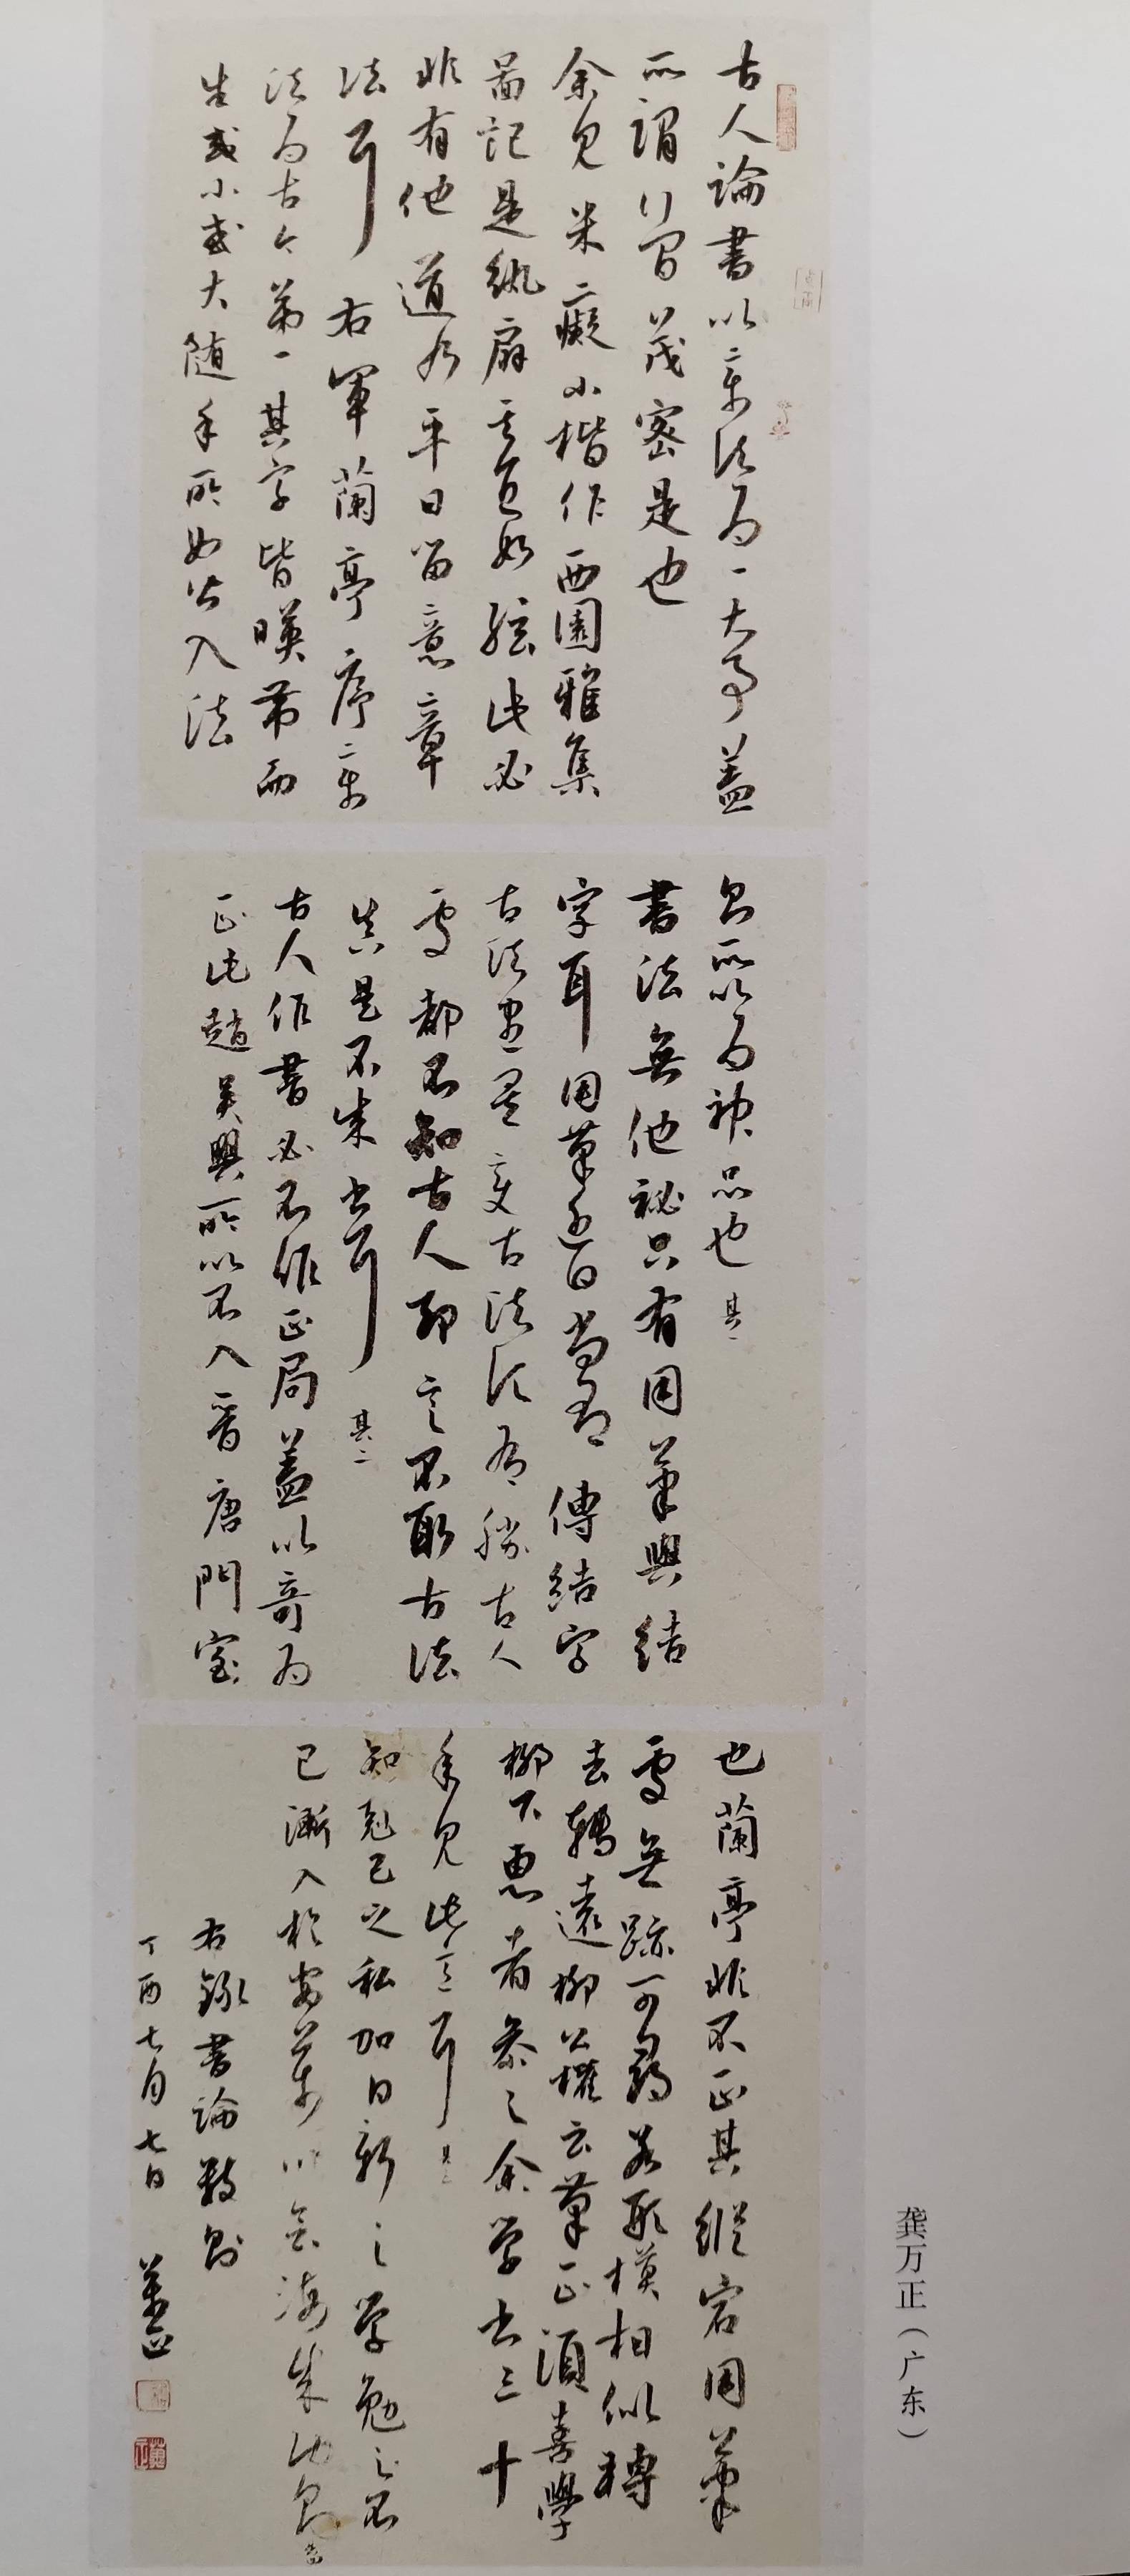 古人論書以章法為一大事蓋
所謂行間茂密是也
余見米癡小楷作西園雅集
圖記是紈扇其直如弦此必
非有他道乃平日留意章
法耳右軍蘭亭序章
法為古今第一其字皆暎帶而
生或小或大随手所如皆入法
則所以為神品也 其一
書法無他秘只有用筆與結
字耳用筆近日尚有傳結字
古法盡矣變古法須有勝古人
處都不知古人却言不取古法
真是不成書耳 其二
古人作書必不作正局蓋以奇為
正此趙吳興所以不入晉唐門室
也蘭亭非不正其縱宕用筆
處無跡可尋若形模相似轉
去轉遠柳公權云筆正須善學
柳下惠者參之余學書三十
年見此意耳
知克己之私加日新之學勉之不
已漸入於
右錄書論數則
丁酉七月七日 萬正
龚万正（广东）